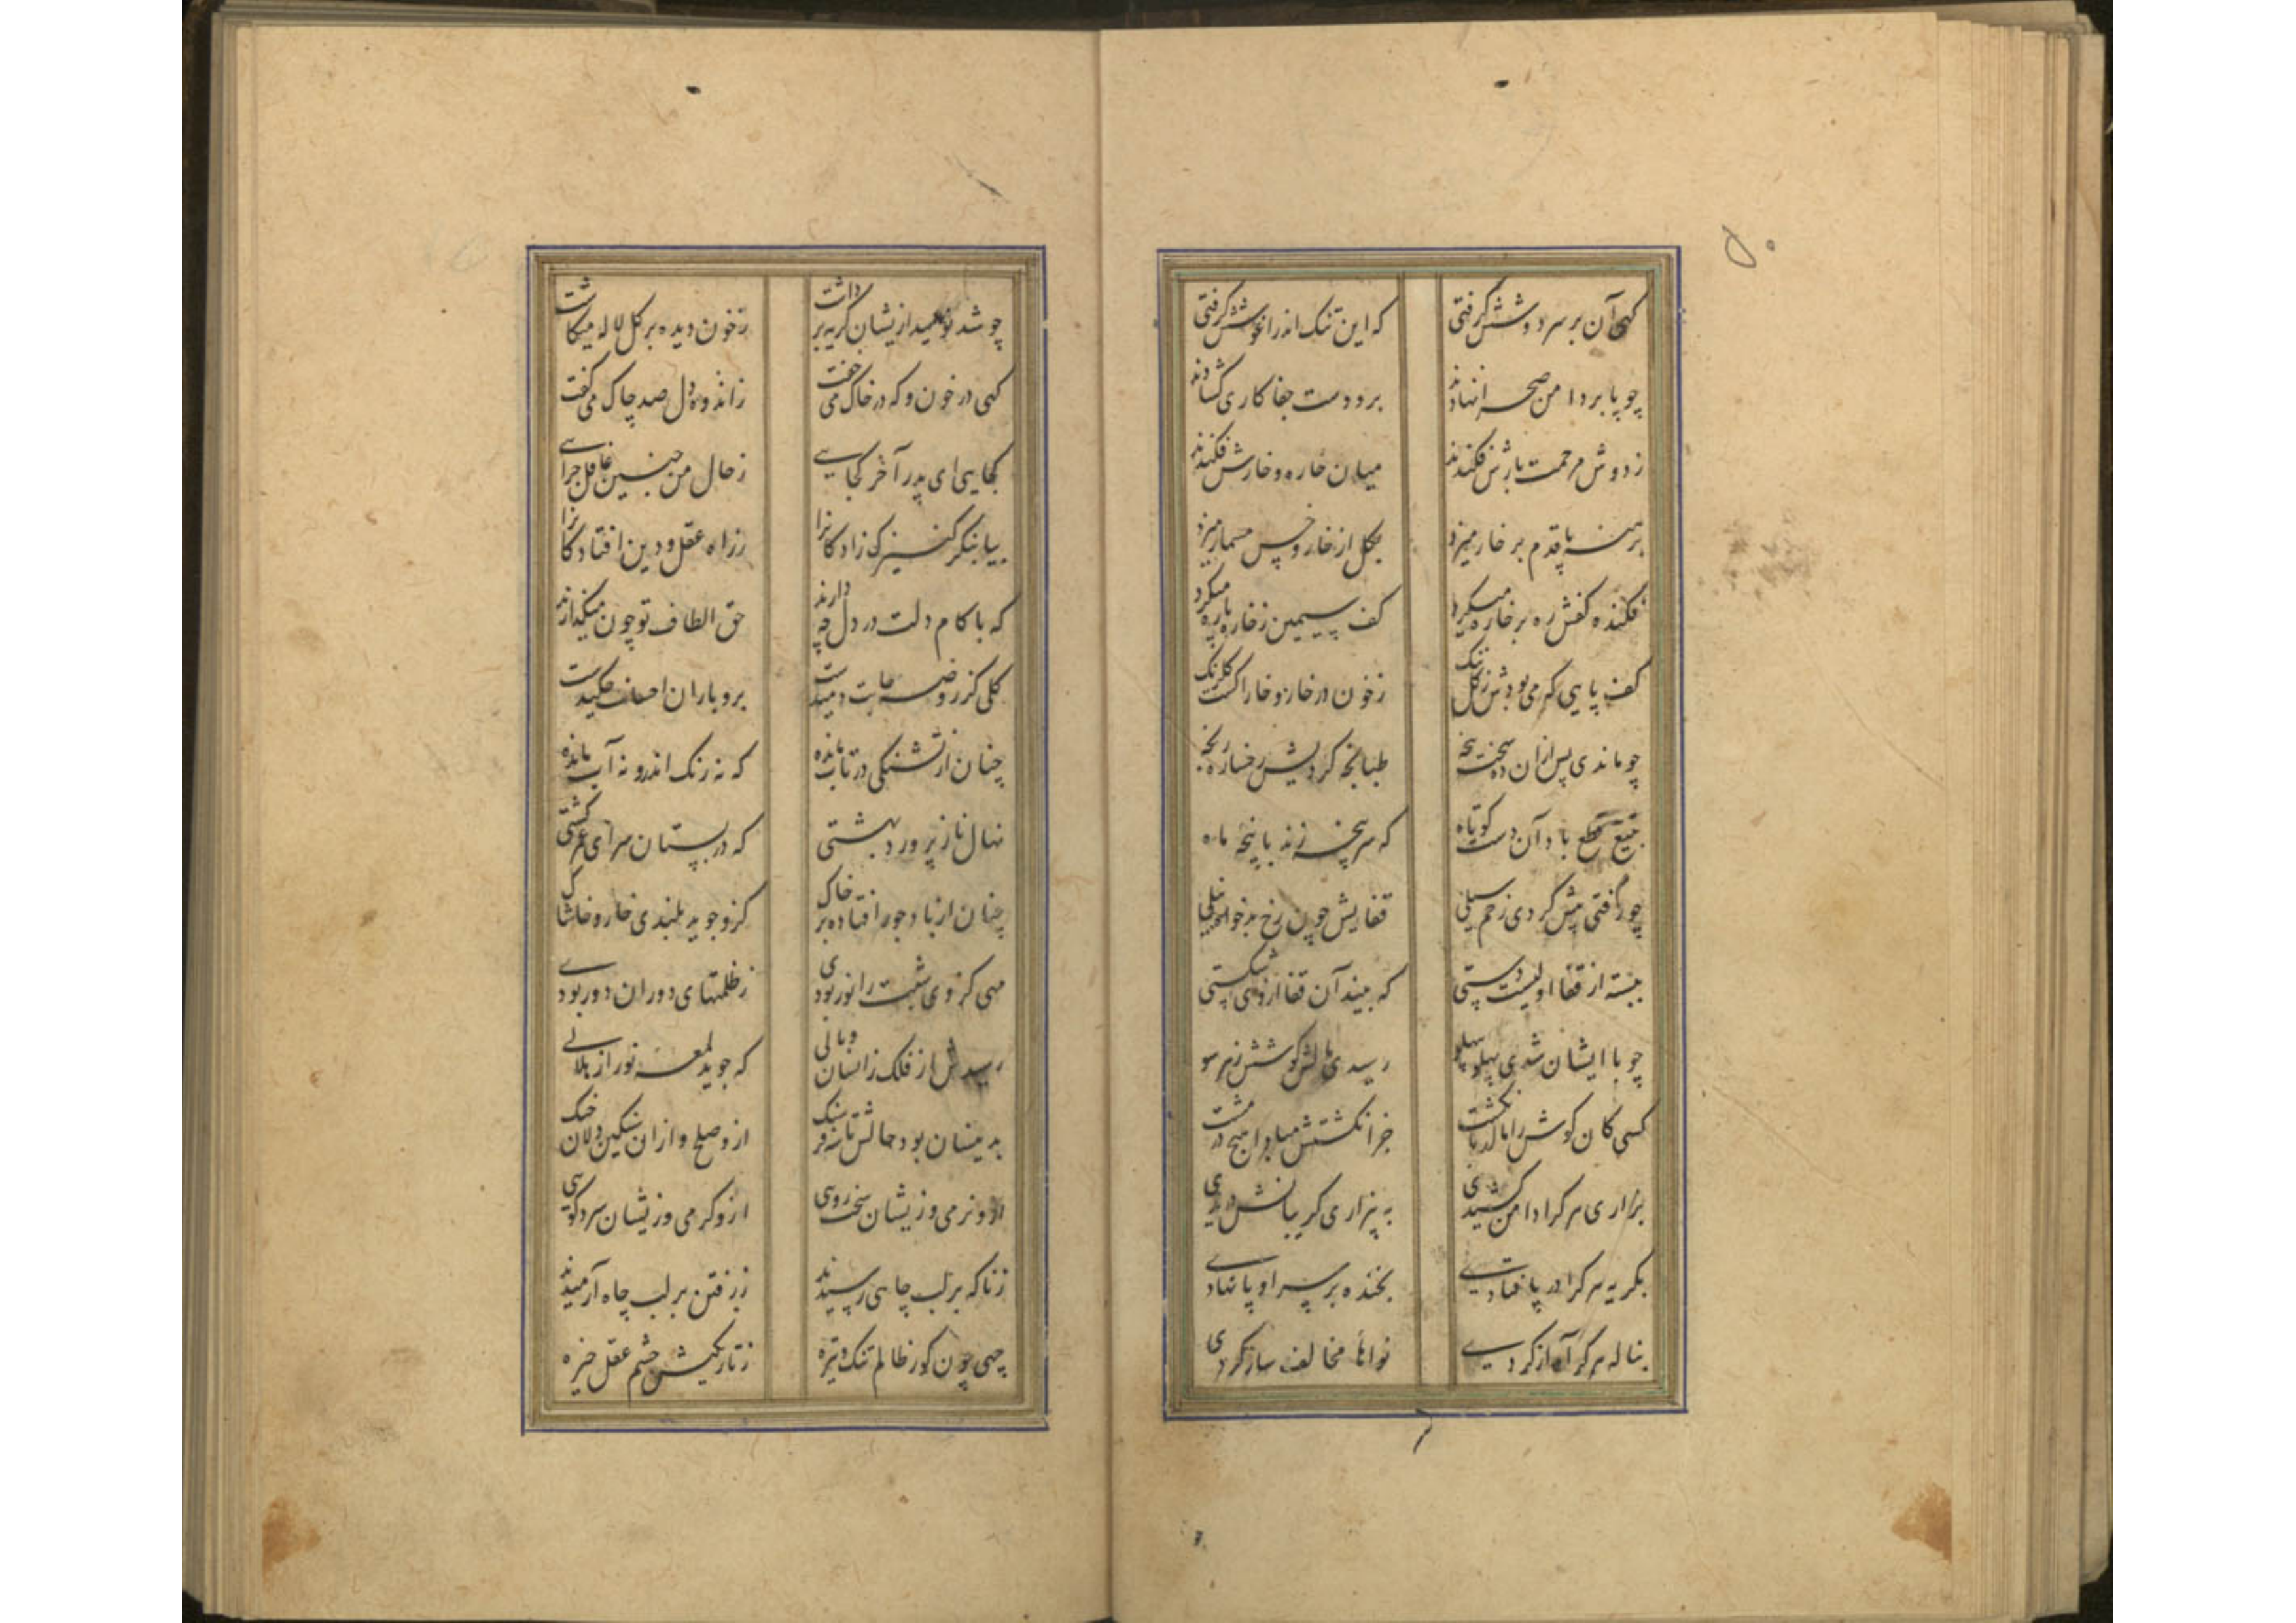 ۵۰
کهی آن بر سر دوشش کرفتی که این تنک اندر اغوشش کرفتی
چو پا بر دامن صحرا نهادند برو دست جفا کاری کشادند
ز دوش مرحمت بارش فکندند میان خاره و خارش فکندند
برهنه پا قدم بر خار میزد بکل از خار و خس مسمار میزد
فکنده کفش ره بر خاره میکرد کف سیمین ز خار پاره میکرد
کف پایی که می بودش ز کل ننک ز خون در خار و خارا کشت کلرنک
چو ماندی پس ازان ده سخت پنجه طبانچه کردیش رخساره رنجه
بتیغ قطع باد آن دست کوتاه که سرپنجه زند با پنجه ماه
چو رفتی پیش کردی زخم سیلی قفایش چون رخ بدخواه نیلی
ببسته از قفا اولیست دستی که بیند آن قفا ازوی شکستی
چو با ایشان شدی پهلو بپهلو رسیدی مالش کوشش ز هر سو
کسی کان کوش را مالد بانکشت جز انکشتش مبادا هیچ در مشت
بزاری هر کرا دامن کشیدی به بیزاری کریبانش دریدی
بکریه هر کرا در پا فتادی بخنده بر سر او پا نهادی
بناله هر کرا آواز کردی نواهای مخالف ساز کردی
چو شد نومید ازیشان کریه برداشت ز خون دیده بر کل لاله میکاشت
کهی در خون و که در خاک می خفت ز اندوه دل صد چاک می کفت
کجایی ای پدر آخر کجایی ز حال من چنین غافل چرایی
بیا بنکر کنیزک زادکانرا ز راه عقل و دین افتادکانرا
که با کام دلت در دل چه دارند حق الطاف تو چون میکذارند
کلی کز روضه جانت دمیدست برو باران احسانت چکیدست
چنان از تشنکی در تاب مانده که نه رنک اندرو نه آب مانده
نهال ناز پرورد بهشتی که در بستان سرای عمر کشتی
چنان از باد جور افتاده بر خاک کزو جوید بلندی خار و خاشاک
مهی کز وی شبت را نور بودی ز ظلمتهای دوران دور بودی
رسیدش از فلک زانسان وبالی که جوید لمعه نور از هلالی
بدینسان بود حالش تا سه فرسنک ازو صلح و ازان سنکین دلان جنک
ازو نرمی وزیشان سخت رویی ازو کرمی وزیشان سرد کویی
زناکه بر لب چاهی رسیدند ز رفتن بر لب چاه آرمیدند
چهی چون کور ظالم تنک و تیره ز تاریکیش چشم عقل خیره